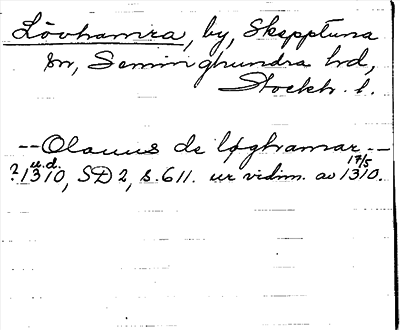 Lövhamra, by, Skepptuna
sn, Seminghundra hd,
Stockh. l.
-- Olauus de løghamar --
? u.d. 1310, SD 2, s. 611. ur vidim. av 17/5 1310.